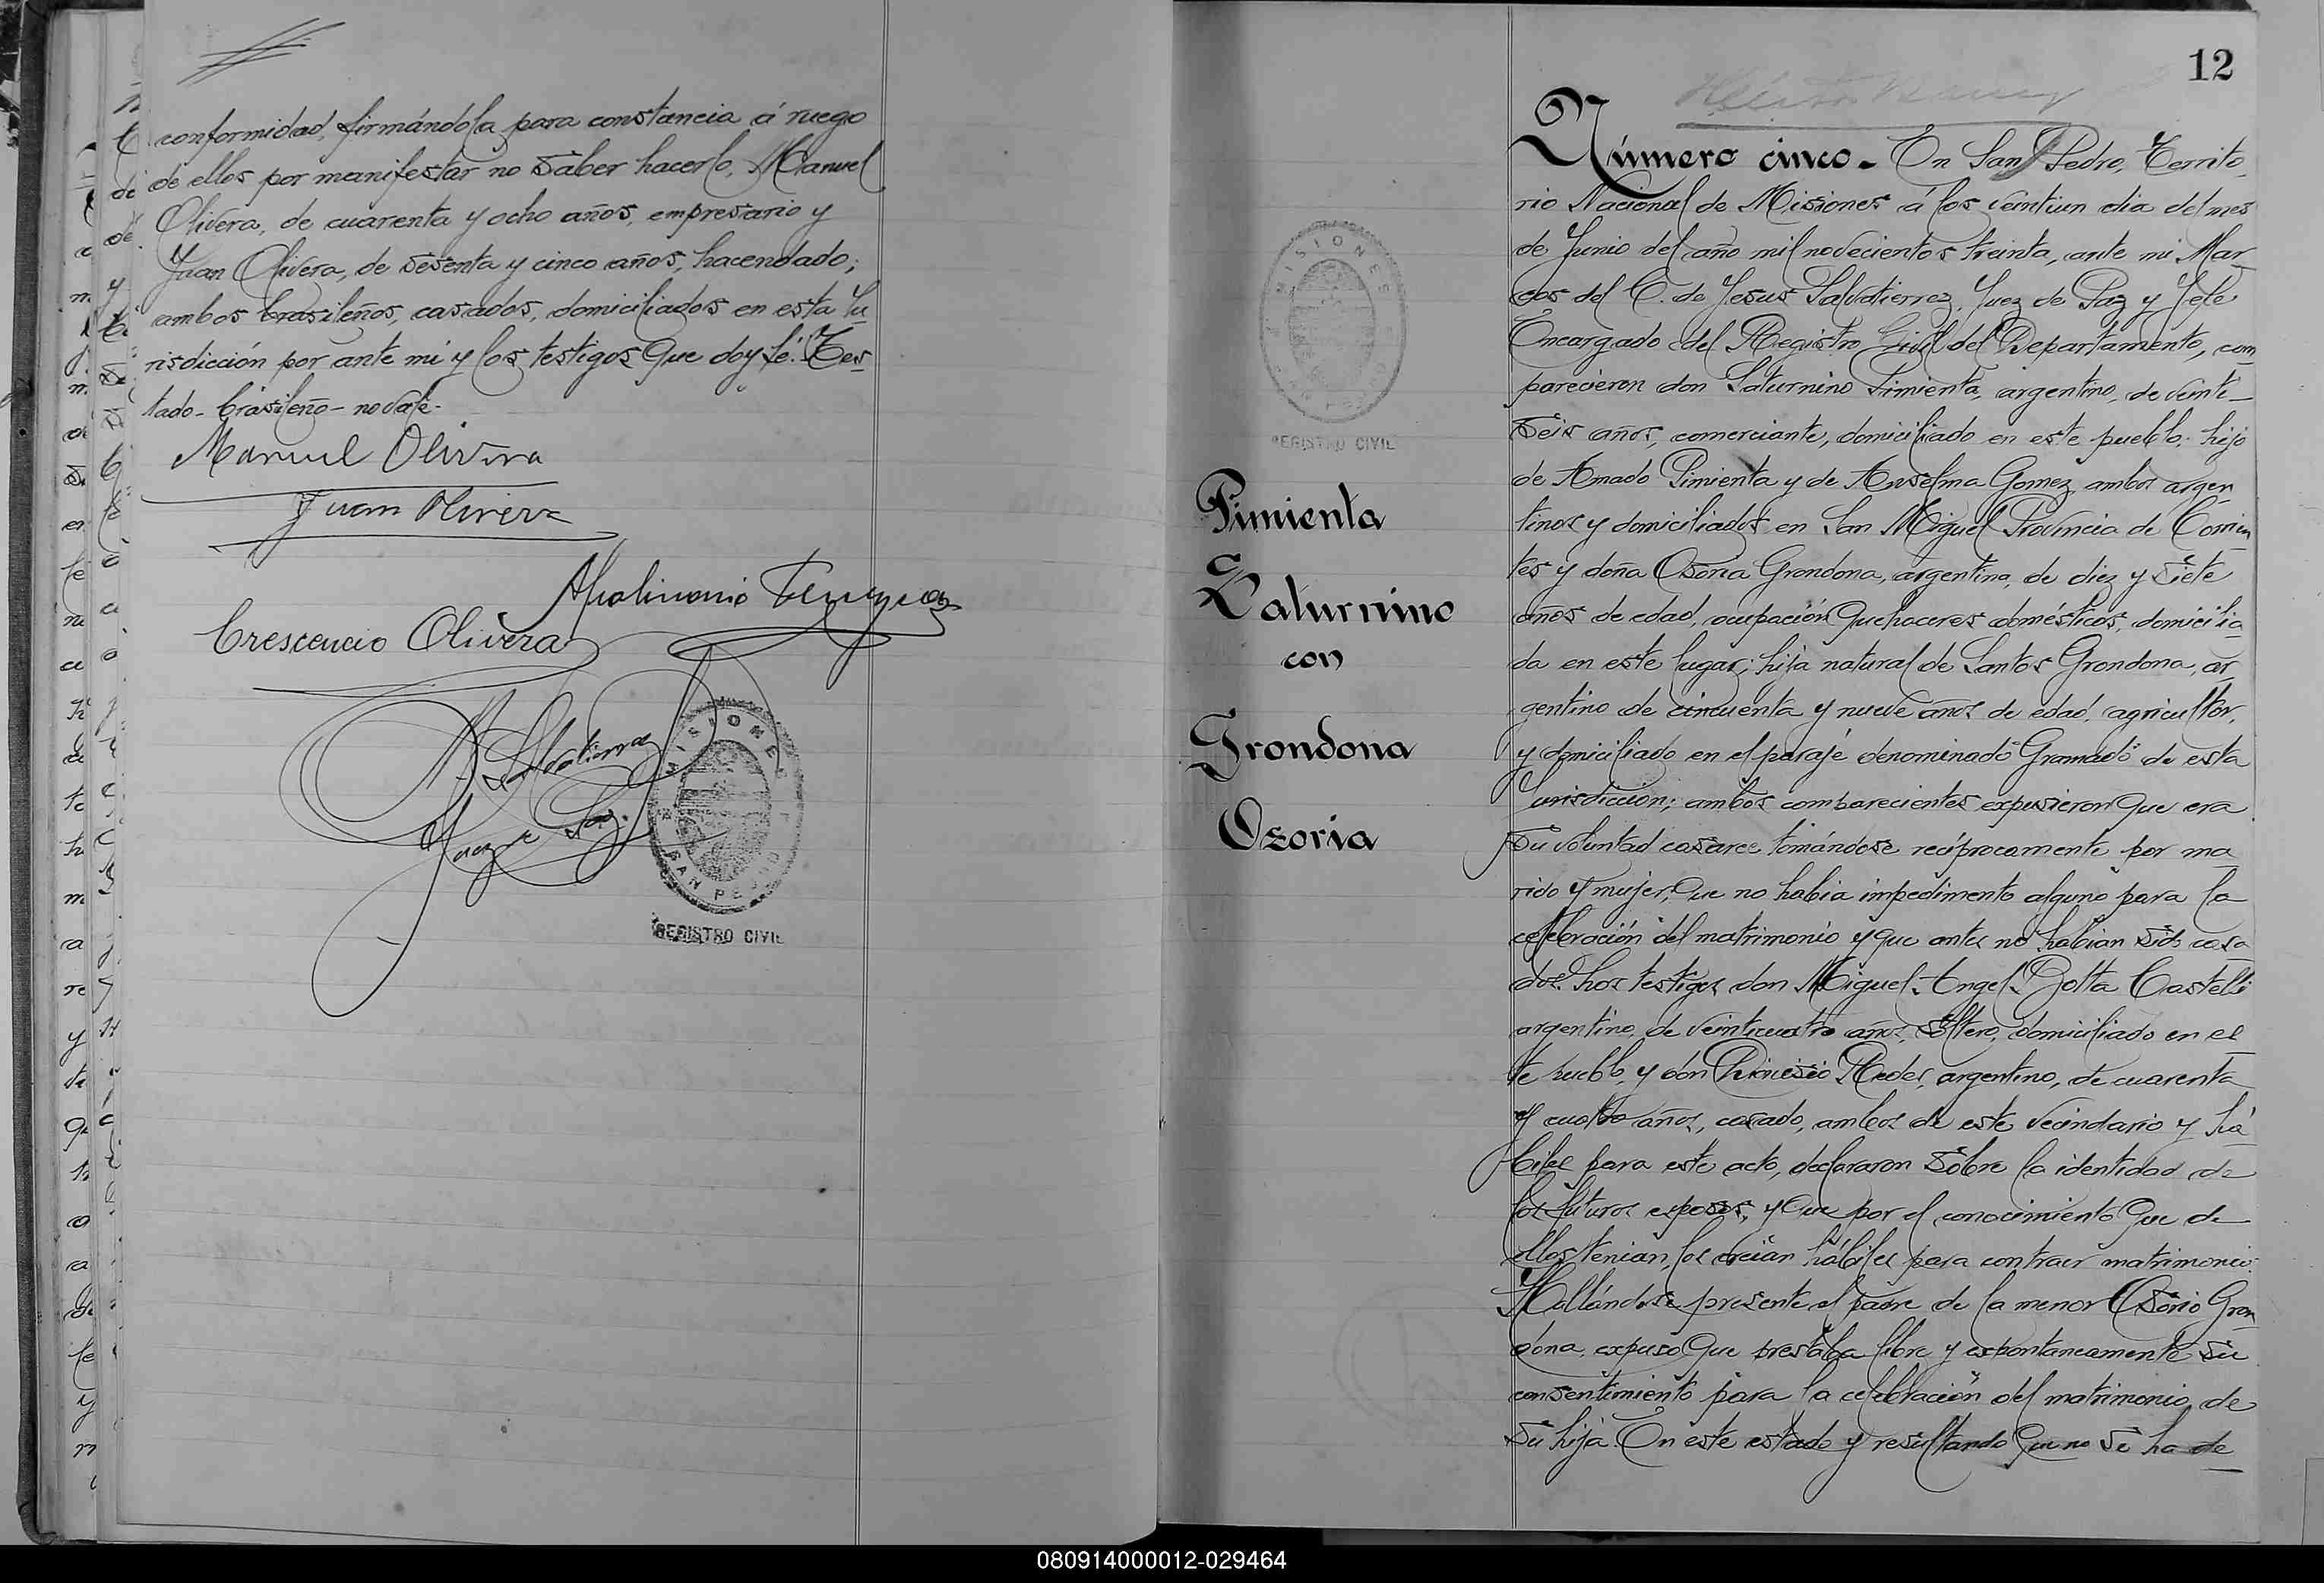 conformidad, firmándola para constancia á ruego
de ellos por manifestar no saber hacerlo, Manuel
Olivera, de cuarenta y ocho años, empresario y
Juan Olivera, de sesenta y cinco años, hacendado;
ambos brasileños, casados, domiciliados en esta Ju
risdicción por ante mi y los testigos que doy fé. Tes
tado - brasileño - no vale -
Manuel Olivera
Juan Olivera
Apolinario
Crescencio Olivera
M. Salvatierra
Juez de Paz.
MISIONES
SAN PEDRO
REGISTRO CIVIL
12
MISIONES
REGISTRO CIVIL
Pimienta
Saturnino
con
Grondona
Ozoria
Número cinco - En San Pedro, Territo
rio Nacional de Misiones á los veintiun dia del mes
de Junio del año mil novecientos treinta, ante mi Mar
cos del C. de Jesus Salvatierrez, Juez de Paz y Jefe
Encargado del Registro Civil del Departamento, com
parecieron don Saturnino Pimienta, argentino, de veinti
seis años, comerciante, domiciliado en este pueblo; hijo
de Amado Pimienta y de Anselma Gomez, ambos argen
tinos y domiciliados en San Miguel Provincia de Corrien
tes y doña Osoria Grondona, argentina, de diez y siete
años de edad, ocupación quehaceres domésticos, domicilia
da en este lugar; hija natural de Santos Grondona, ar
gentino de cincuenta y nueve años de edad, agricultor,
y domiciliado en el paraje denominado "Gramado" de esta
Jurisdiccion; ambos comparecientes expusieron que era
su voluntad casarce tomándose recíprocamente por ma
rido y mujer; Que no habia impedimento alguno para la
celebración del matrimonio y que antes no habian sido casa
dos. Los testigos don Miguel Angel Botta Castelli
argentino, de veinticuatro años, soltero, domiciliado en es
te pueblo, y don argentino, de cuarenta
y cuatro años, casado, ambos de este vecindario y há
biles para este acto, declararon sobre la identidad de
los futuros esposos, y que por el conocimiento que de
ellos tenian, los creian hábiles para contraer matrimonio.
Hallándose presente el padre de la menor Osoria Gron
dona, expuso que prestaba libre y espontaneamente su
consentimiento para la celebración del matrimonio de
su hija. En este estado y resultando que no se ha de
080914000012-029464